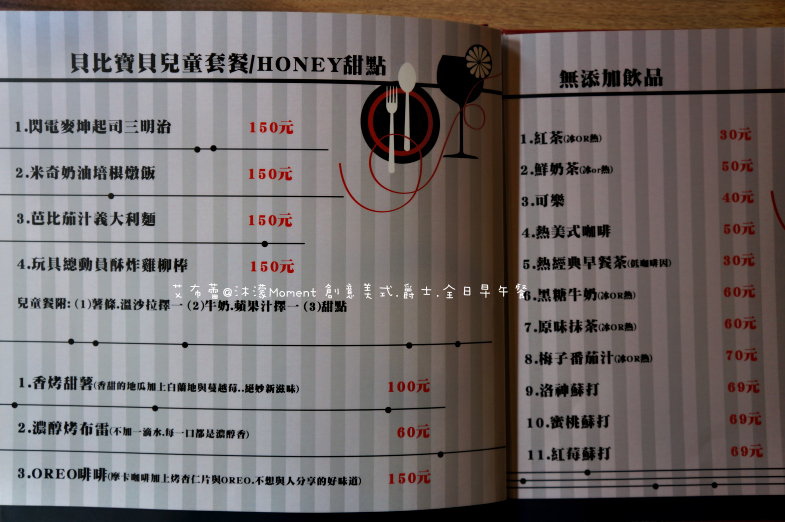 貝比寶貝兒童套餐/HONEY甜點
1.閃電麥坤起司三明治 150元
2.米奇奶油培根燉飯 150元
3.芭比茄汁義大利麵 150元
4.玩具總動員酥炸雞柳棒 150元
兒童餐附:(1)薯條.溫沙拉擇一 (2)牛奶.蘋果汁擇一 (3)甜點
1.香烤甜薯(香甜的地瓜加上白蘭地與蔓越莓..絕妙新滋味) 100元
2.濃醇烤布雷(不加一滴水.每一口都是濃醇香) 60元
3.OREO啡啡(摩卡咖啡加上烤杏仁片與OREO.不想與人分享的好味道) 150元
艾布蕾@沐濛Moment 創意美式.爵士.全日早午餐
無添加飲品
1.紅茶(冰OR熱) 30元
2.鮮奶茶(冰or熱) 50元
3.可樂 40元
4.熱美式咖啡 50元
5.熱經典早餐茶(低咖啡因) 30元
6.黑糖牛奶(冰OR熱) 60元
7.原味抹茶(冰OR熱) 60元
8.梅子番茄汁(冰OR熱) 70元
9.洛神蘇打 69元
10.蜜桃蘇打 69元
11.紅莓蘇打 69元